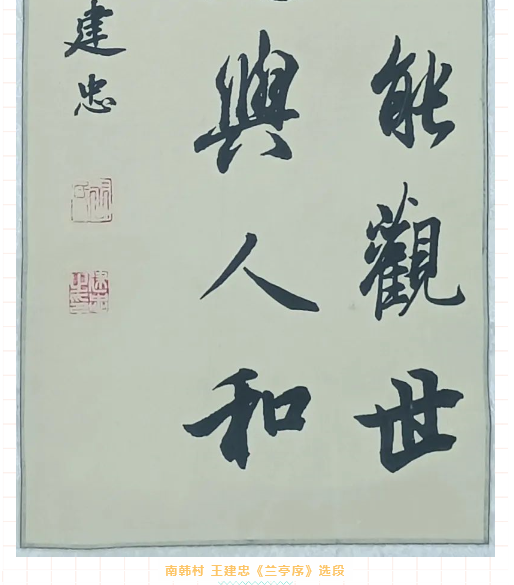 能觀世
與人和
建忠
南韩村 王建忠《兰亭序》选段